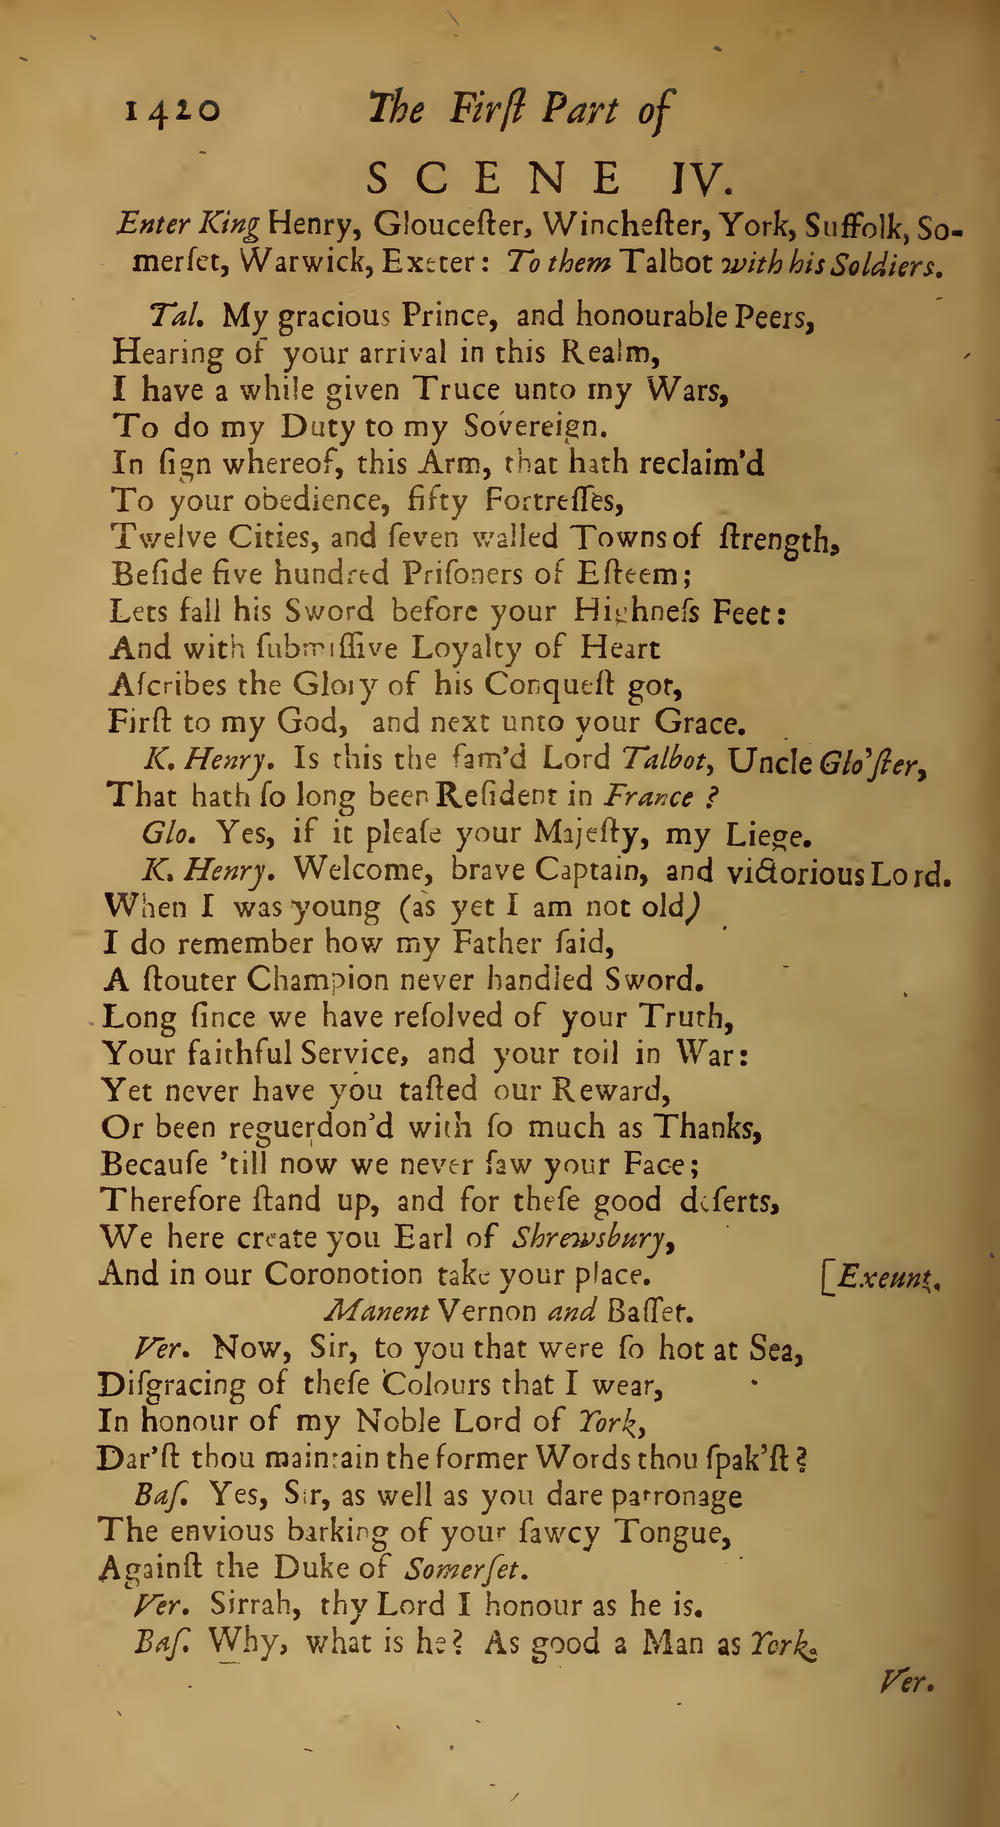 1420 The Firſt Part of
SCENE IV.
Enter King Henry, Glouceſter, Wincheſter, York, Suffolk, So-
merſet, Warwick, Exeter: To them Talbot with his Soldiers.
Tal. My gracious Prince, and honourable Peers,
Hearing of your arrival in this Realm,
I have a while given Truce unto my Wars,
To do my Duty to my Sovereign.
In ſign whereof, this Arm, that hath reclaim'd
To your obedience, fifty Fortreſſes,
Twelve Cities, and ſeven walled Towns of ſtrength,
Beſide five hundred Priſoners of Eſteem;
Lets fall his Sword before your Highneſs Feet:
And with ſubmiſſive Loyalty of Heart
Aſcribes the Glory of his Conqueſt got,
Firſt to my God, and next unto your Grace.
K. Henry. Is this the fam'd Lord Talbot, Uncle Glo'ſter,
That hath ſo long been Reſident in France ?
Glo. Yes, if it pleaſe your Majeſty, my Liege.
K. Henry. Welcome, brave Captain, and victorious Lord.
When I was young (as yet I am not old)
I do remember how my Father ſaid,
A ſtouter Champion never handled Sword.
Long ſince we have reſolved of your Truth,
Your faithful Service, and your toil in War:
Yet never have you taſted our Reward,
Or been reguerdon'd with ſo much as Thanks,
Becauſe 'till now we never ſaw your Face;
Therefore ſtand up, and for theſe good deſerts,
We here create you Earl of Shrewsbury,
And in our Coronotion take your place. [Exeunt.
Manent Vernon and Baſſet.
Ver. Now, Sir, to you that were ſo hot at Sea,
Diſgracing of theſe Colours that I wear,
In honour of my Noble Lord of York,
Dar'ſt thou maintain the former Words thou ſpak'ſt?
Baſ. Yes, Sir, as well as you dare patronage
The envious barking of your ſawcy Tongue,
Againſt the Duke of Somerſet.
Ver. Sirrah, thy Lord I honour as he is.
Baſ. Why, what is he? As good a Man as York.
Ver.